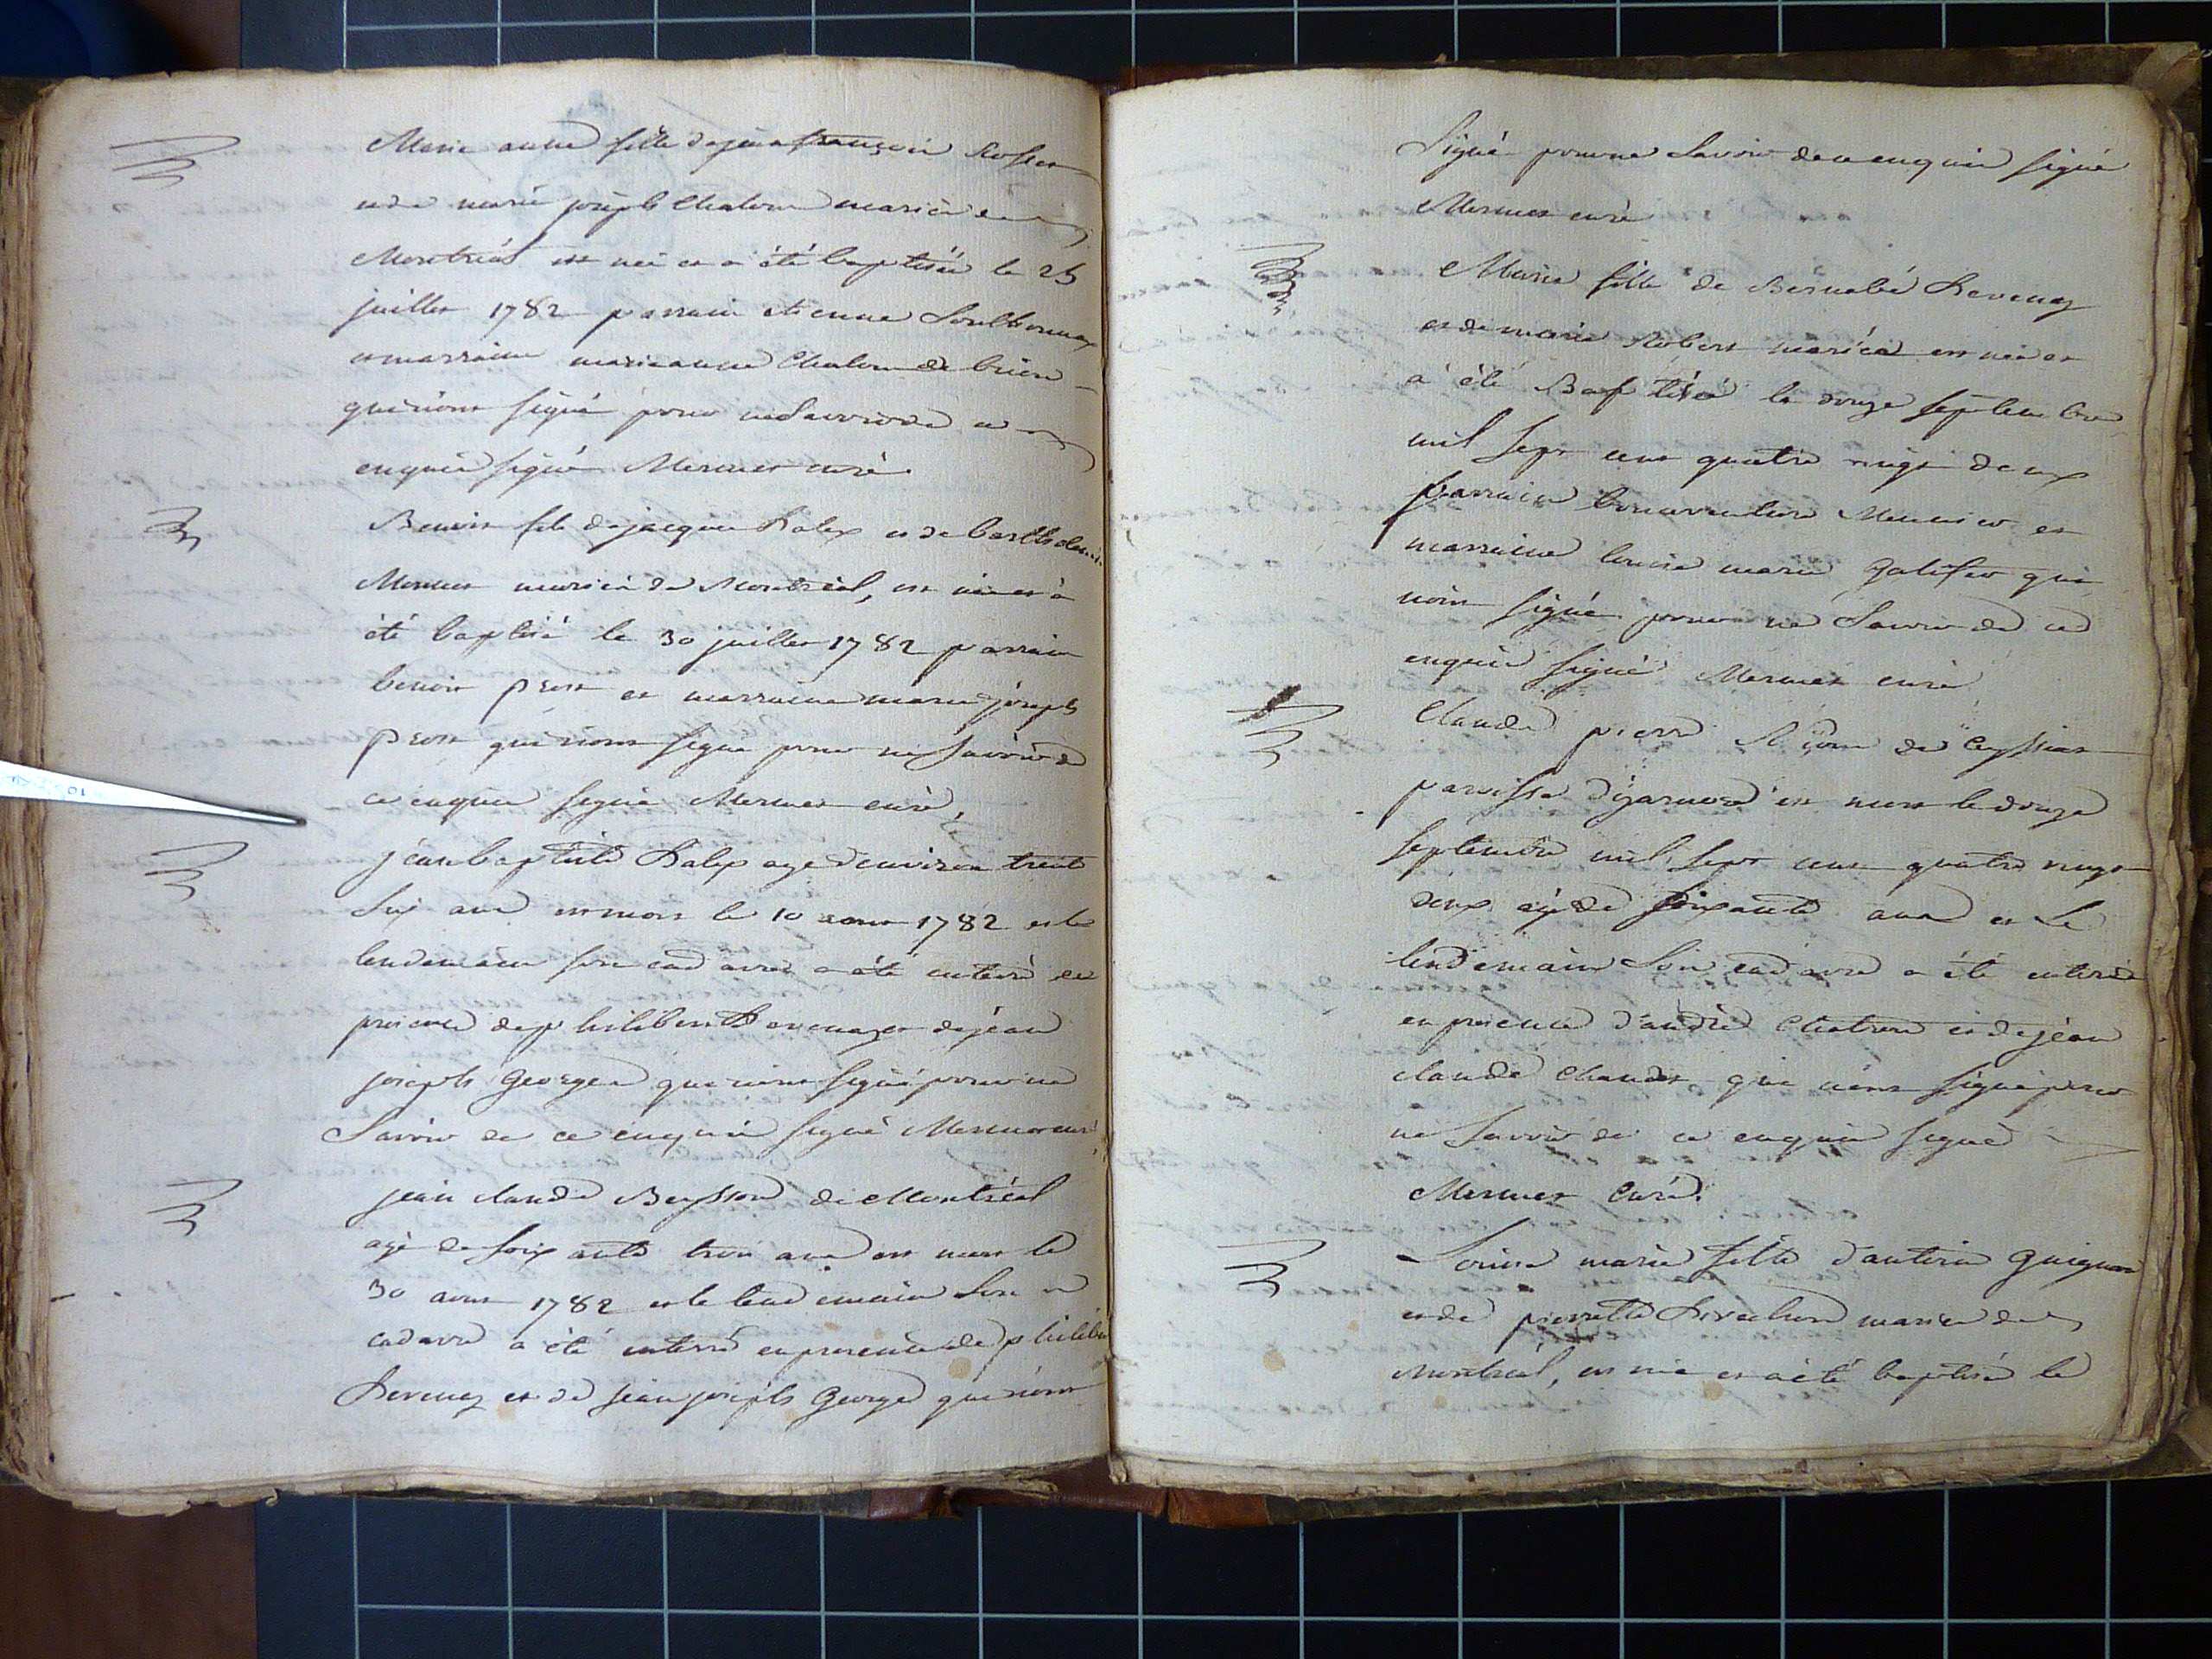 Marie anne fille de jean françois Rosset
et de marie joseph Chatron mariés de
Montréal est née et a été baptisée le 25
juillet 1782 parrain etienne Sonthonnax
et marraine marieanne Chatron de brion
qui n'ont signé pour ne savoir de ce
enquis signé Mermet curé
Benoit fils de jacque Ralex et de barthelemie
Mermet mariés de Montréal, est né et à
été baptisé le 30 juillet 1782 parrain
benoit prost et marraine marie joseph
prost qui n'ont signé pour ne savoir de
ce enquis signé Mermet curé,
jean baptiste Ralex agé d'environ trente
six ans est mort le 10 aout 1782 et le
lendemain son cadavre a été enterré en
presence de philibert Revenaz et de jean
joseph George qui n'ont signé pour ne
savoir de ce enquis signé Mermet curé,
jean claude Beysson de Montréal
agé de soixante trois ans est mort le
30 aout 1782 et le lendemain son
cadavre a été enterré en presence de philibert
Revenaz et de jean joseph George qui n'ont
signé pour ne savoir de ce enquis signé
Mermet curé
Marie fille de Bernabé Revenaz
et de marie Robert mariés est née et
a été Baptisée le douze septembre
mil sept cent quatre vingt deux
parrain bonaventure Meunier et
marraine louise marie Galifer qui
n'ont signé pour ne savoir de ce
enquis signé Mermet curé
Claude pierre de Ceyssiat
paroisse d'izernore est mort le douze
septembre mil sept cent quatre vingt
deux agé de soixante ans et Le
lendemain son cadavre a été enterré
en presence d'andré Chatron et de jean
claude Chandet qui n'ont signé pour
ne savoir de ce enquis signé
Mermet Curé.
Louise marie fille d'antoine Guignon
et de pierrette mariés de
Montréal, est née et a été baptisée le